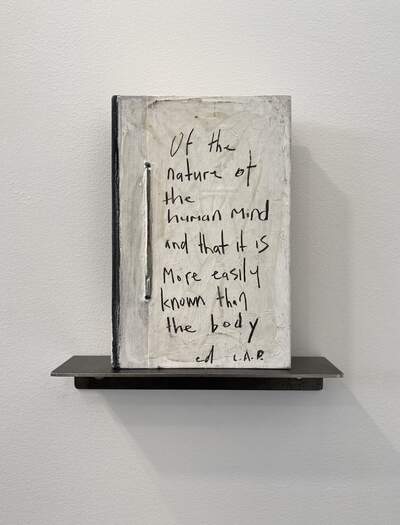 Of the
nature of
the
human mind
and that it is
more easily
known than
the body
ed L.A.P.